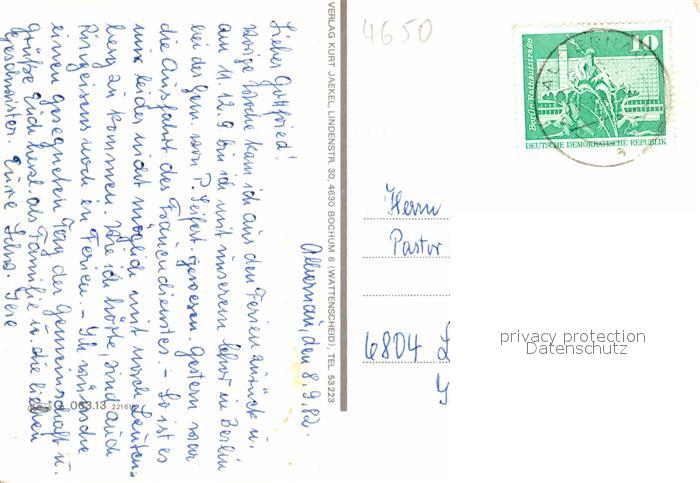 Albernau, den 8.9.82.
Lieber Gottfried!
Vorige Woche kam ich aus den Ferien zurück u.
am 11.12.9 bin ich mit unserem Chor in Berlin
bei der Gem. von P. Seifert. gewesen. Gestern war
die Ausfahrt des Frauendienstes. – So ist es
mir leider nicht möglich mit nach
berg zu kommen. Wie ich hörte, sind auch
Ringeisens noch in Ferien. – Ich wünsche
einen gesegneten Tag der Gemeinschaft u.
Grüße Euch herzl. als Familie u. die lieben
Geschwister. Eure Schw.
VERLAG KURT JAEKEL, LINDENSTR. 30, 4630 BOCHUM 6 (WATTENSCHEID), TEL. 53223
063.13
4650
10
Berlin-Rathausstraße
DEUTSCHE DEMOKRATISCHE REPUBLIK
Herrn
Pastor
6804
privacy protection
Datenschutz